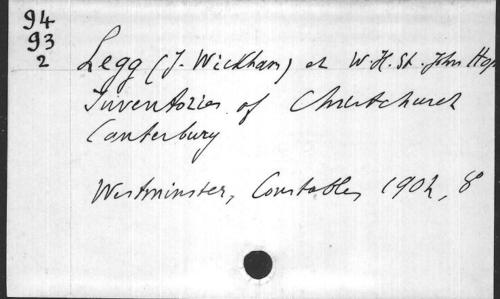 94
93
2
Legg (J. Wickham) et W. H. St. John Hop
Inventories of Christchurch
Canterbury
Westminster, Constable, 1902, 8°